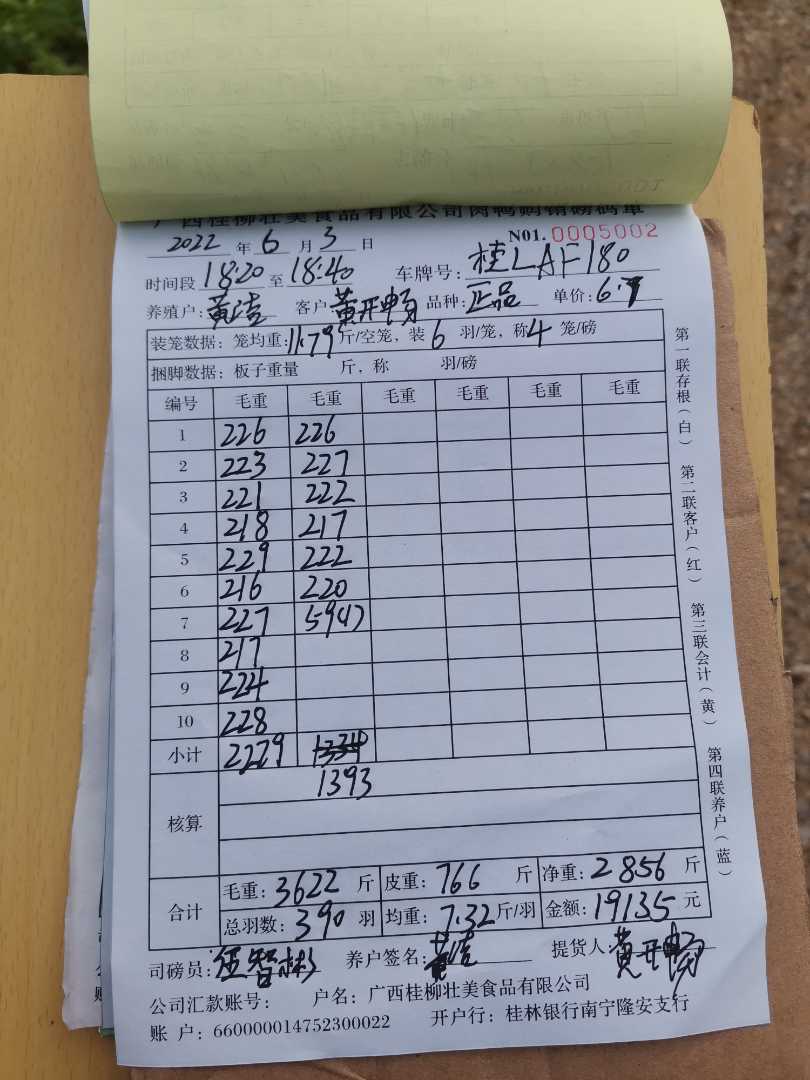 广西桂柳壮美食品有限公司肉鸭购销磅码单
2022 年 6 月 3 日 N01. 0005002
时间段 18:20 至 18:40 车牌号: 桂LAF180
养殖户: 黄洁 客户: 黄开畅 品种: 正品 单价: 6.7
装笼数据: 笼均重: 11.79 斤/空笼, 装 6 羽/笼, 称 4 笼/磅
捆脚数据: 板子重量 斤, 称 羽/磅
编号 毛重 毛重 毛重 毛重 毛重 毛重
1 226 226
2 223 227
3 221 222
4 218 217
5 229 222
6 216 220
7 227 59(7)
8 217
9 224
10 228
小计 2229 1334
1393
核算
合计 毛重: 3622 斤 皮重: 766 斤 净重: 2856 斤
总羽数: 390 羽 均重: 7.32 斤/羽 金额: 19135 元
司磅员: 伍智彬 养户签名: 黄洁 提货人: 黄开畅
公司汇款账号: 户名: 广西桂柳壮美食品有限公司
账 户: 660000014752300022 开户行: 桂林银行南宁隆安支行
第一联存根(白) 第二联客户(红) 第三联会计(黄) 第四联养户(蓝)